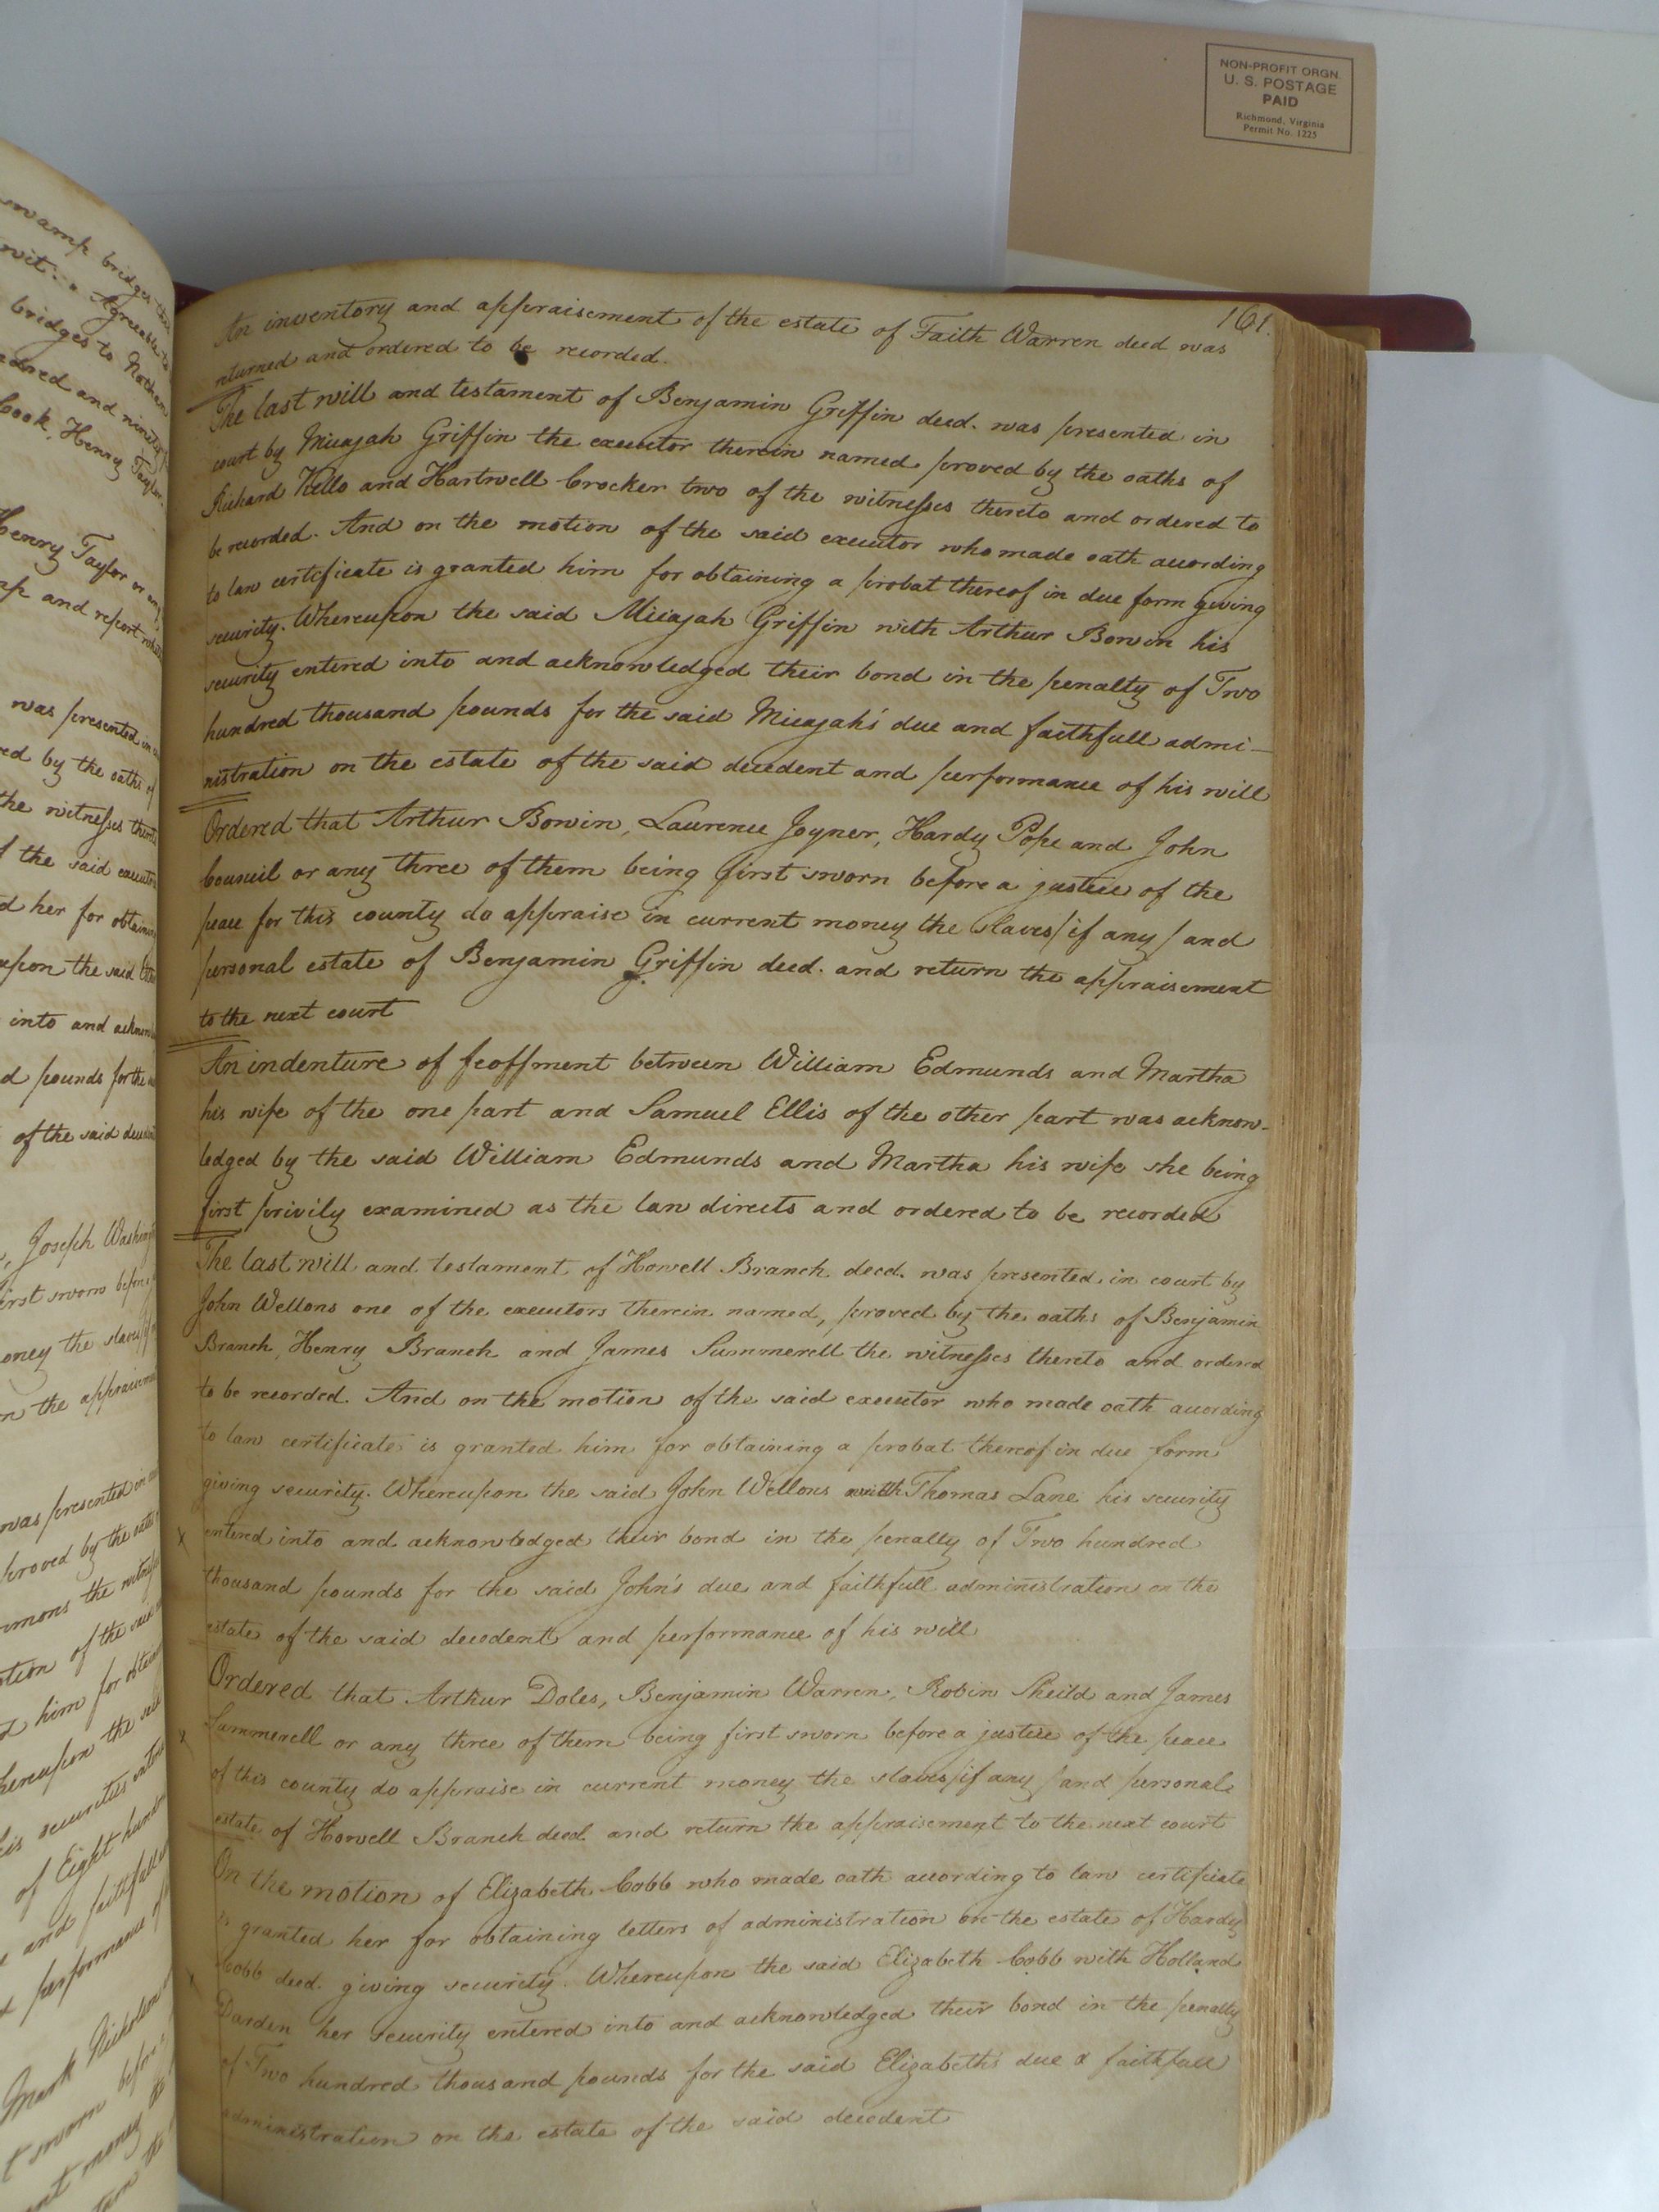 NON-PROFIT ORGN.
U. S. POSTAGE
PAID
Richmond, Virginia
Permit No. 1225
swamp bridges
wit. Agreeable to
bridges to Nathan
and ninety
Cook, Henry Taylor
Henry Taylor or any
and report
was presented in
by the oaths of
the witnesses
of the said
her for
upon the said
into and
pounds for the
of the said
Joseph
first sworn before
money the slaves
the
was presented in
proved by the
the
of the
him for
the
securities
of Eight
and
performance
Mark Nicholson
sworn before
money the
the
161.
An inventory and appraisement of the estate of Faith Warren decd was
returned and ordered to be recorded.
The last will and testament of Benjamin Griffin decd. was presented in
court by Micajah Griffin the executor therein named, proved by the oaths of
Richard Kello and Hartwell Crocker two of the witnesses thereto and ordered to
be recorded. And on the motion of the said executor who made oath according
to law certificate is granted him for obtaining a probat thereof in due form giving
security. Whereupon the said Micajah Griffin with Arthur Bowin his
security entered into and acknowledged their bond in the penalty of Two
hundred thousand pounds for the said Micajah's due and faithfull admi-
nistration on the estate of the said decedent and performance of his will
Ordered that Arthur Bowin, Laurence Joyner, Hardy Pope and John
Council or any three of them being first sworn before a justice of the
peace for this county do appraise in current money the slaves/if any/and
personal estate of Benjamin Griffin decd. and return the appraisement
to the next court
An indenture of feoffment between William Edmunds and Martha
his wife of the one part and Samuel Ellis of the other part was acknow-
ledged by the said William Edmunds and Martha his wife she being
first privily examined as the law directs and ordered to be recorded
The last will and testament of Howell Branch decd. was presented in court by
John Wellons one of the executors therein named, proved by the oaths of Benjamin
Branch, Henry Branch and James Summerell the witnesses thereto and ordered
to be recorded. And on the motion of the said executor who made oath according
to law certificate is granted him for obtaining a probat thereof in due form
giving security. Whereupon the said John Wellons with Thomas Lane his security
x entered into and acknowledged their bond in the penalty of Two hundred
thousand pounds for the said John's due and faithfull administration on the
estate of the said decedent and performance of his will
Ordered that Arthur Doles, Benjamin Warren, Robin Sheild and James
x Summerell or any three of them being first sworn before a justice of the peace
of this county do appraise in current money the slaves/if any/and personal
estate of Howell Branch decd. and return the appraisement to the next court
On the motion of Elizabeth Cobb who made oath according to law certificate
is granted her for obtaining letters of administration on the estate of Hardy
x Cobb decd. giving security. Whereupon the said Elizabeth Cobb with Holland
Darden her security entered into and acknowledged their bond in the penalty
of Two hundred thousand pounds for the said Elizabeth's due & faithfull
administration on the estate of the said decedent